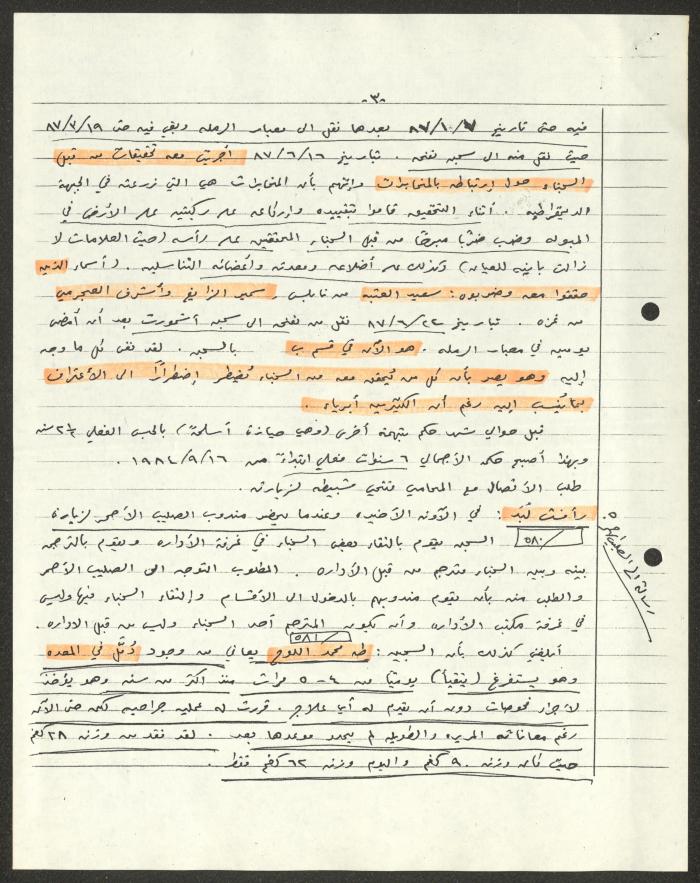 -٣-
فيه حتى تاريخ ٨٧/١٠/٧ بعدها نقل الى معبار الرمله وبقي فيه حتى ٨٧/٧/١٩
حيث نقل منه الى سجن نفحه. بتاريخ ٨٧/٦/١٦ أُجريت معه تحقيقات من قبل
السجناء حول إرتباطه بالمخابرات واتُهم بأن المخابرات هي التي زرعته في الجبهة
الديمقراطيه. أثناء التحقيق قاموا بتقييده وإركاعه على ركبتيه على الأرض في
وضرب ضربًا مبرحًا من قبل السجناء المحققين على رأسه (حيث العلامات لا
زالت باينه للعيان) وكذلك على أضلاعه ومعدته وأعضائه التناسليه. (أسماء الذين
حققوا معه وضربوه: سعيد العتبه من نابلس، سمير الزايغ وأشرف العجرمي
من غزه. بتاريخ ٨٧/٦/٢٢ نقل من نفحه الى سجن أشمورت بعد أن أمضى
يومين في معبار الرمله. هو الآن في قسم ب بالسجن. لقد نفى كل ما وجه
إليه وهو يصر بأن كل من يُحقق معه من السجناء يُضطر إضطرارًا الى الأعتراف
بما يُنسب إليه رغم أن الكثيرين أبرياء.
قبل حوالي شهر حكم بتهمة أخرى (وهي حيازة أسلحة) بالحبس الفعلي ٢½ سنه
وبهذا أصبح حكمه الأجمالي ٦ سنوات فعلي ابتداءً من ١٩٨٤/٩/١٦.
طلب الأتصال مع المحامي فتحي شبيطه لزيارته.
رأفت لُبّد: في الآونه الأخيره وعندما يحضر مندوب الصليب الأحمر لزيارة
٥٨٠/ السجن يقوم بالتقاء بعض السجناء في غرفة الأداره ويقوم بالترجمه
بينه وبين السجناء مترجم من قبل الأداره. المطلوب التوجه الى الصليب الأحمر
والطلب منه بأن يقوم مندوبهم بالدخول الى الأقسام وإلتقاء السجناء فيها وليس
في غرفة مكتب الأداره وأن يكون المترجم أحد السجناء وليس من قبل الاداره.
٥٨١/
أبلغني كذلك بأن السجين: طه محمد اللوح يعاني من وجود دُمّل في المعده
وهو يستفرغ (يتقيأ) يوميًا من ٤-٥ مرات منذ أكثر من سنه وهو يؤخذ
لاجراء فحوصات دون أن يقدم له أي علاج. قررت له عمليه جراحيه لكن حتى الآن
رغم معاناته المريره والطويله لم يحدد موعدها بعد. لقد فقد من وزنه ٢٨ كغم
حيث كان وزنه ٩٠ كغم واليوم وزنه ٦٢ كغم فقط.
رسالة الى الصليب الأحمر